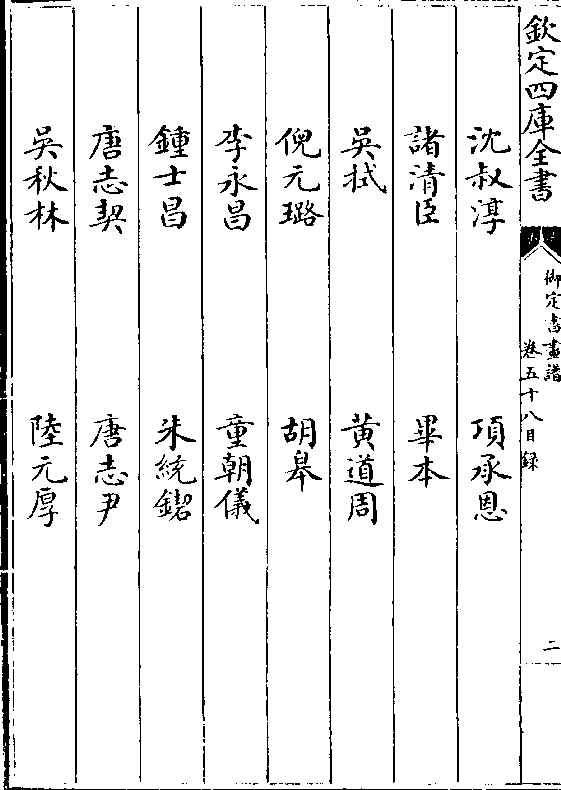 欽定四庫全書
御定書畫譜
卷五十八目録
二
沈叔淳 項承恩
諸清臣 畢本
吳拭 黄道周
倪元璐 胡皋
李永昌 童朝儀
鍾士昌 朱統鍣
唐志契 唐志尹
吳秋林 陸元厚